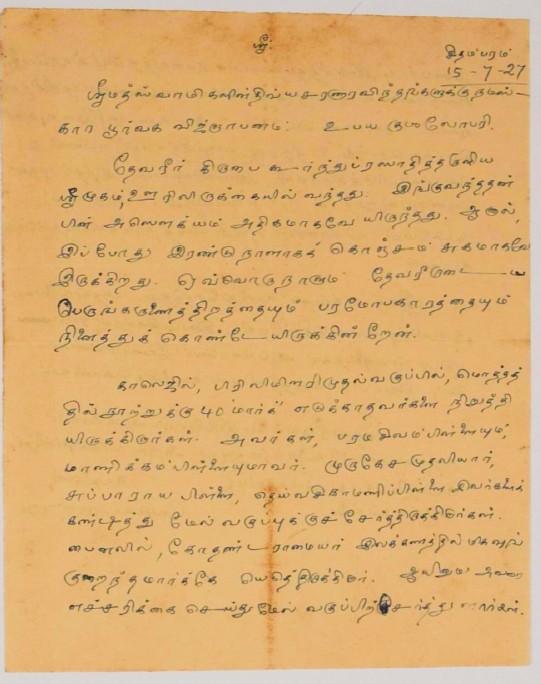 ஸ்ரீ:
சிதம்பரம்
15-7-27
ஸ்ரீமத்ஸ்வாமிகளின்திவ்ய சரணாரவிந்தங்களுக்கு நமஸ்-
கார பூர்வக விஜ்ஞாபனம்: உபய குசலோபரி.
தேவரீர் கிருபை கூர்ந்துப்ரஸாதித்தருளிய
ஸ்ரீமுகம், ஊரிலிருக்கையில் வந்தது. இங்குவந்ததன்
பின் அஸௌக்யம் அதிகமாகவே யிருந்தது. ஆனால்,
இப்போது இரண்டுநாளாகக் கொஞ்சம் சுகமாகவே
இருக்கிறது. ஒவ்வொருநாளும் தேவரீருடைய
பெருங்கருணைத்திறத்தையும் பரமோபகாரத்தையும்
நினைத்துக் கொண்டேயிருக்கின்றேன்.
காலெஜில், பிரிலிமினரிமுதல்வகுப்பில், மொத்தத்
தில்நூற்றுக்கு 40 மார்க் எடுக்காதவர்களை நிறுத்தி
யிருக்கிறார்கள். அவர்கள், பரமசிவம்பிள்ளையும்,
மாணிக்கம்பிள்ளையுமாவர். முருகேசமுதலியார்,
சுப்பாராயபிள்ளை, தெய்வசிகாமணிப்பிள்ளை இவர்களைக்
கண்டித்து மேல்வகுப்புக்குச் சேர்த்திருக்கிறார்கள்.
பைனலில், கோதண்டராமையர் இலக்கணத்தில் மிகவுங்
குறைந்தமார்க்கே யெடுத்திருக்கிறார். ஆயினும் அவரை
எச்சரிக்கை செய்துமேல் வகுப்பிற் சேர்த்துளார்கள்.